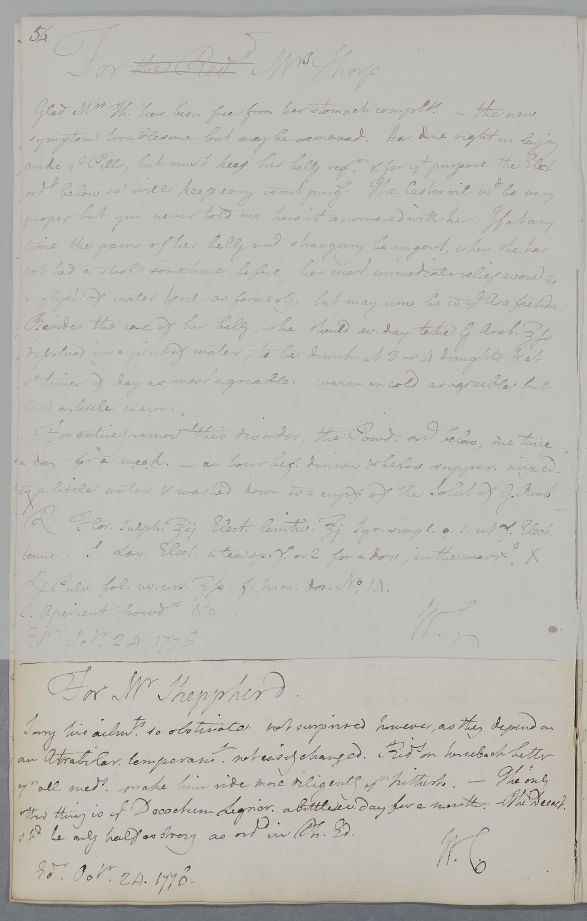 54
For the Revd Mrs Thorp.
Glad Mrs Th. has been free from her stomach complts. — the new
symptom troublesome but may be removed. Has done right in laying
aside ye Pills, but must keep her belly regr. & for yt purpose the Elect.
ordd below wc will keep easy wtout purgg. The Castor oil wd be very
proper but you never told me how it answered with her. If at any
time the pains of her belly and be urgent, when she has
not had a stool sometime before, her most immediate relief would be
a of water & oil as formerly, but may now be wt
Besides the care of her belly, she should ev. day take G. Arab. ℥ss
dissolved in a pint of water, to be drunk at 3 or 4 draughts that
times of day as most agreable, warm or cold as agreable but
a little warm.
For entire removl this disorder, the Powd. ord below, one twice
a day for a week. — an hour bef. dinner & before supper. mixed
wt a little water & washed down wt a cup of the Solut of G. Arab.
℞ Flor. Sulph. ʒij Elect. lenitiv. ℥j Syr. simpl. q. s. ut f. Elect.
tenue. S. Lax. Elect. a teasp. f. or 2 for a dose, in the morng. X
℞ Pulv. fol. uv. urs. ℥ss f. h. m. dos. No. 14.
S. Aperient powdrs &c
Edr. Octr. 24. 1776
W. C
For Mr Sheppherd.
Sorry his ailmts. so obstinate not surprised however, as they depend on
an Atrabilar. temperamt. not easily changed. Ridg on horseback better
yn all meds. make him ride more diligently yn hitherto. — The only
other thing is ye Decoctum Lignor. a bottle ev day for a month. The Decoct.
shd be only half as strong as ordd in Ph. Ed.
W. C
Edr. Octr. 24. 1776.